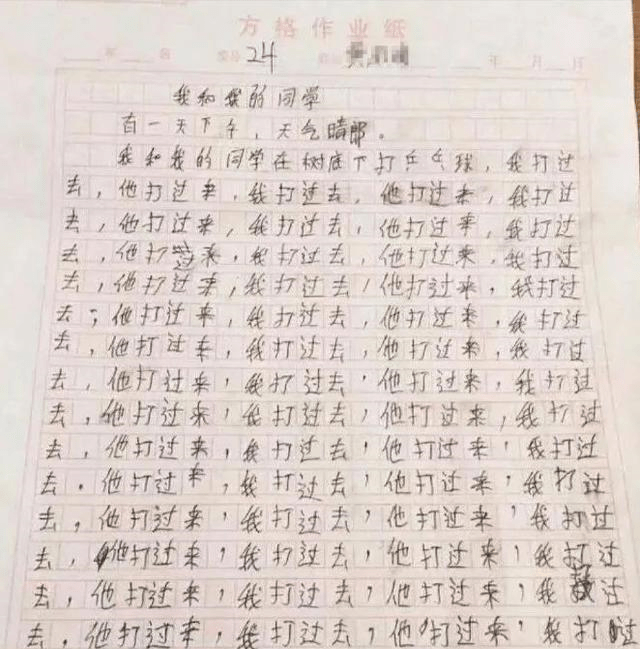 方格作业纸
24 年 月 日
我和我的同学
百一天下午，天气晴郎。
我和我的同学在树底下打乒乓球，我打过
去，他打过来，我打过去，他打过来，我打过
去，他打过来，我打过去，他打过来，我打过
去，他打过来，我打过去，他打过来，我打过
去，他打过来，我打过去，他打过来，我打过
去，他打过来，我打过去，他打过来，我打过
去，他打过来，我打过去，他打过来，我打过
去，他打过来，我打过去，他打过来，我打过
去，他打过来，我打过去，他打过来，我打过
去，他打过来，我打过去，他打过来，我打过
去，他打过来，我打过去，他打过来，我打过
去，他打过来，我打过去，他打过来，我打过
去，他打过来，我打过去，他打过来，我打过
去，他打过来，我打过去，他打过来，我打过
去，他打过来，我打过去，他打过来，我打过